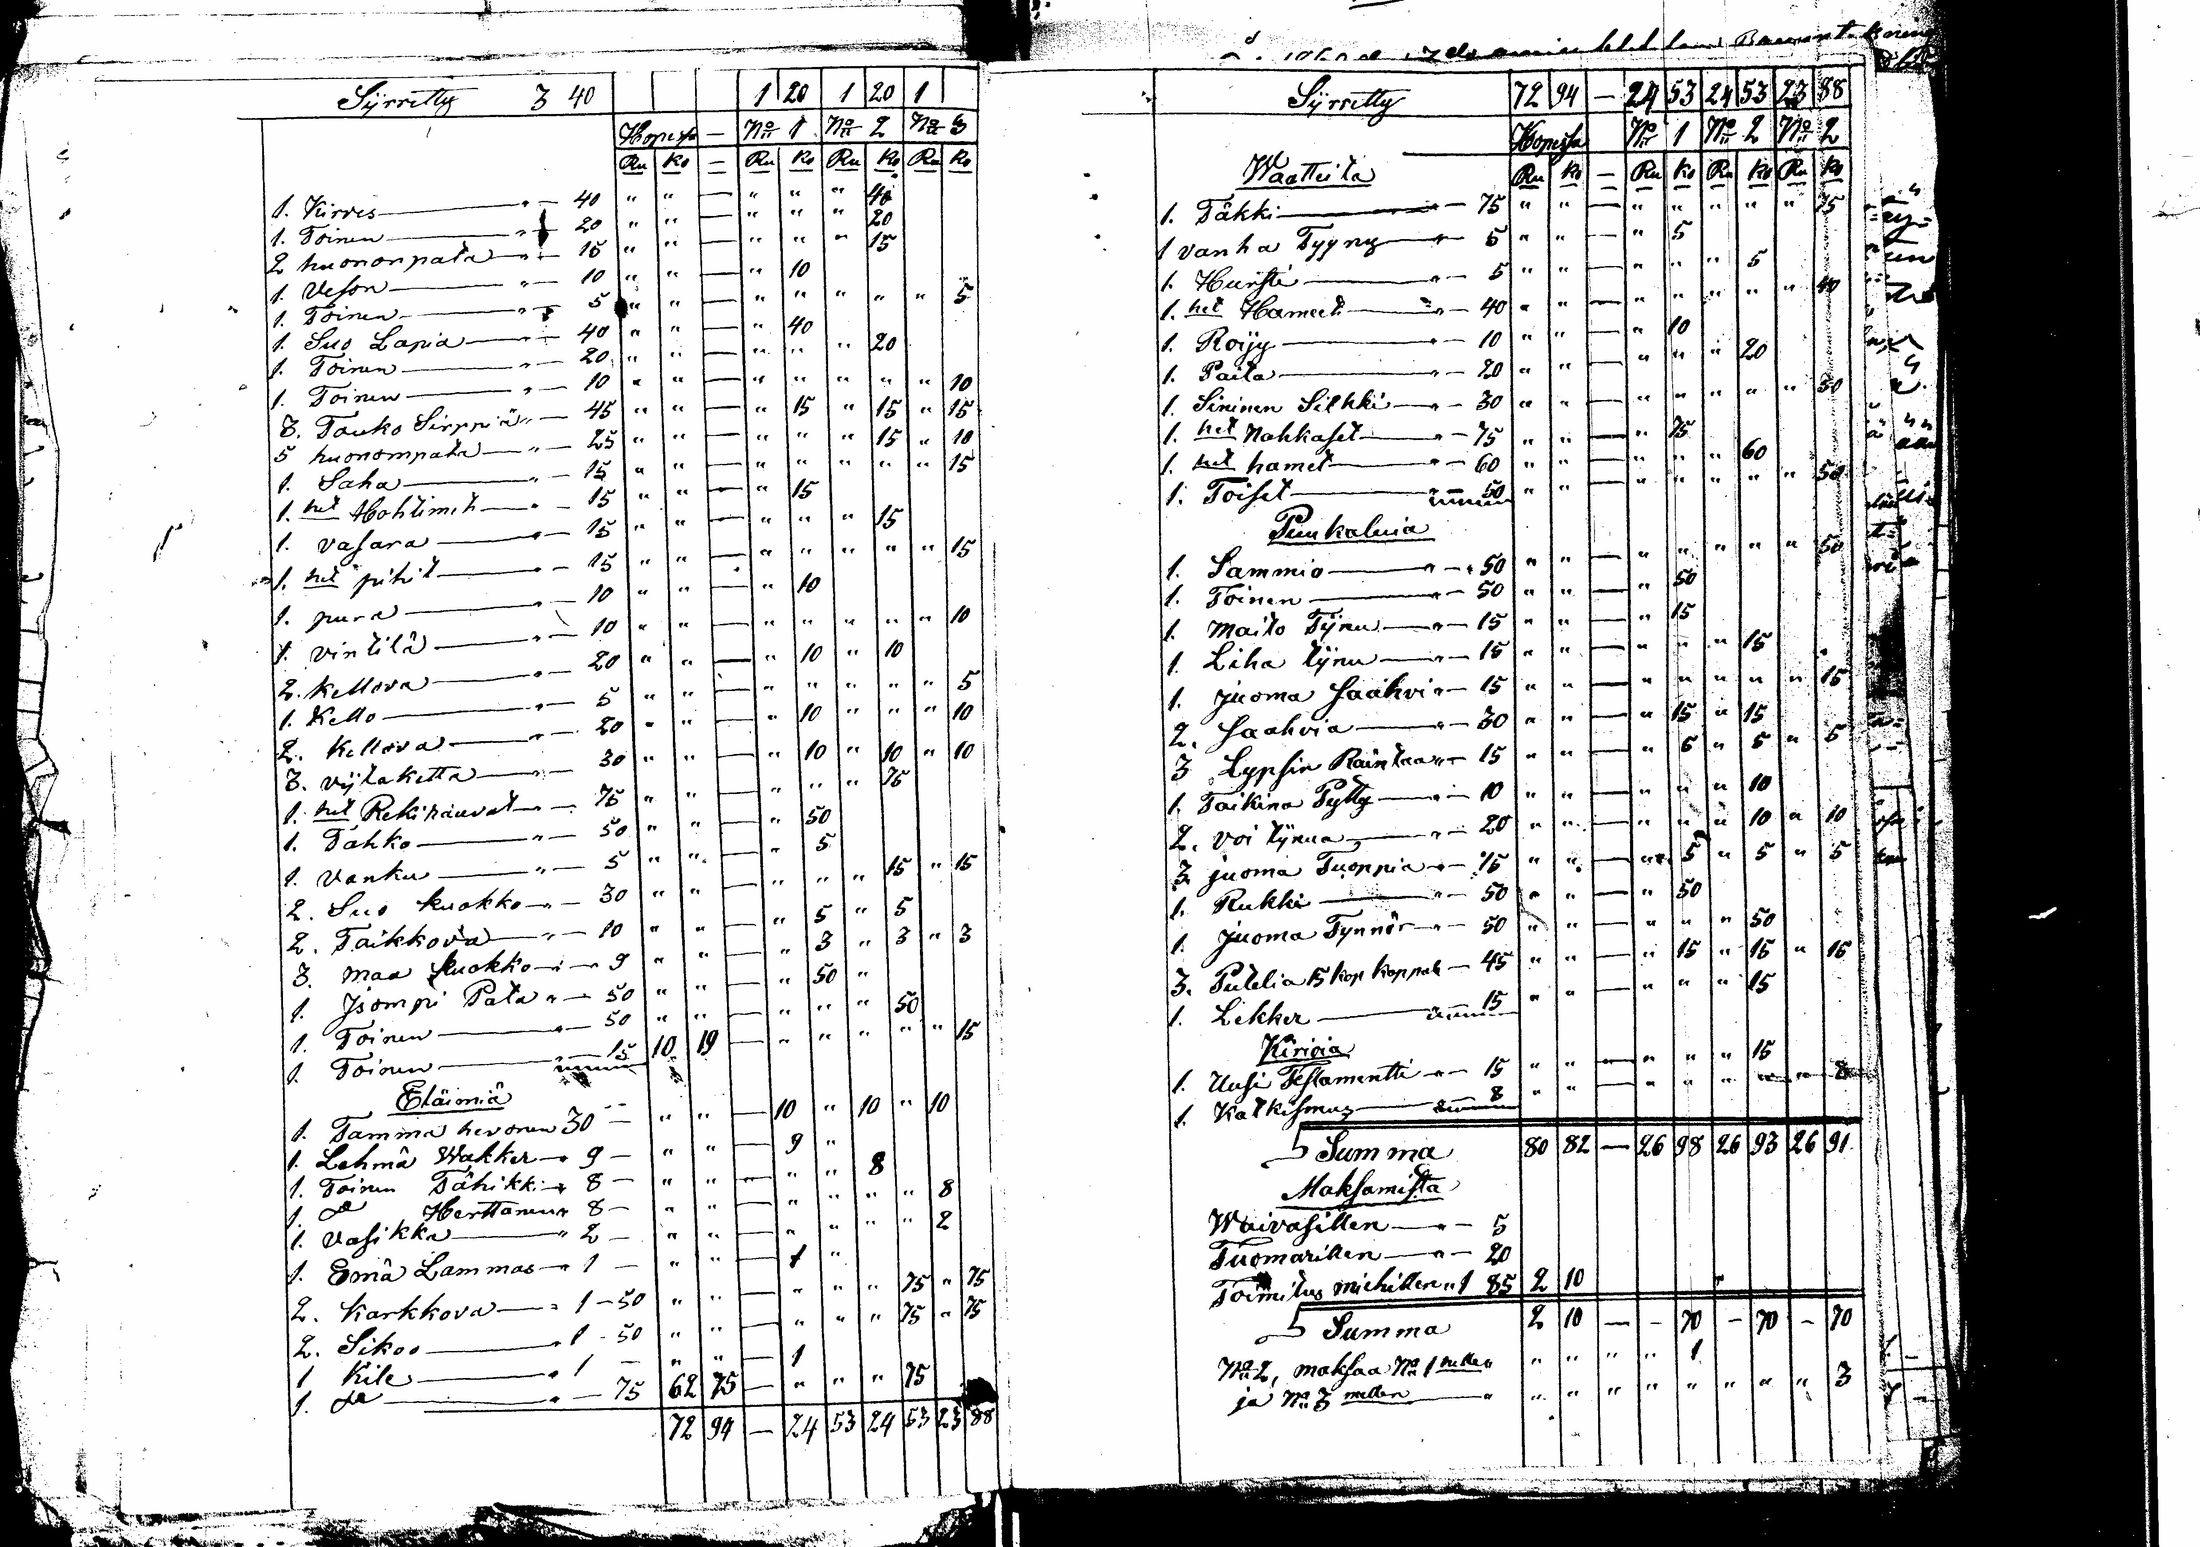 Syrretty 3 40 1 20 1 20 1
Hopessa — No 1 No 2 No 3
Ru Ko — Ru Ko Ru Ko Ru Ko
1. Kirves — " — 40 " " — " " " 40
1. Toinen — " — 20 " " — " " " 20
2 huonompata — " — 15 " " — " " " 15
1. Veson — " — 10 " " — " 10
1. Toinen — " — 5 " " — " " " " " 5
1. Suo Lapia — " — 40 " " — " 40
1. Toinen — " — 20 " " — " " " 20
1. Toinen — " — 10 " " — " " " " " 10
3. Touko Sirppiä " — 45 " " — " 15 " 15 " 15
5 huonompata — " — 25 " " — " " " 15 " 10
1. Saha — " — 15 " " — " " " " " 15
1. het Hohtimet — " — 15 " " — " 15
1. vasara — " — 15 " " — " " " 15
1. het pihit — " — 15 " " — " " " " " 15
1. pura — " — 10 " " — " 10
1. vintilä — " — 10 " " — " " " " " 10
2. Kellova — " — 20 " " — " 10 " 10
1. Kello — " — 5 " " — " " " " " 5
2. Kellova — " — 20 " " — " 10 " " " 10
3. viitaketta — " — 30 " " — " 10 " 10 " 10
1. het Rekirauvat — " — 75 " " — " " " 75
1. Tahko — " — 50 " " — " 50
1. Vanku — " — 5 " " — " 5
2. Suo kuokko — " — 30 " " — " " " 15 " 15
2. Taikkova — " — 10 " " — " 5 " 5
3. maa kuokko — " — " 9 " " — " 3 " 3 " 3
1. Jsompi Pata " — 50 " " — " 50 "
1. Toinen — " — 50 " " — " " " 50
1. Toinen — " — 15 10 19 — " " " " " 15
Eläimiä
1. Tamma hevonen 30 — " " — 10 " 10 " 10
1. Lehmä Wakker — " 9 — " " — 9 "
1. Toinen Tähikki — " 8 — " " — " " 8
1. do Herttanen " 8 — " " — " " " " 8
1. Vasikka — " 2 — " " — " " " " 2
1. Emä Lammas — " 1 — " " — 1 "
2. Karkkova — " 1 — 50 " " — " " " 75 " 75
2. Sikoo — " 1 — 50 " " — " " " 75 " 75
1 Kile — " 1 — " " — 1
1. do — " — 75 62 75 — " " " 75
72 94 — 24 53 24 53 23 88
Syrretty 72 94 — 24 53 24 53 23 88
Hopessa No 1 No 2 No 2
Waatteita Ru Ko — Ru Ko Ru Ko Ru Ko
1. Täkki — " — 75 " " — " " " " " 75
1 vanha Tyyny — " — 5 " " — " 5
1. Hursti — " — 5 " " — " " " 5
1. het Hameet — " — 40 " " — " " " " " 40
1. Roijy — " — 10 " " — " 10
1. Paita — " — 20 " " — " " " 20
1. Sininen Silkki — " — 30 " " — " " " " " 30
1. het Nahkaset — " — 75 " " — " 75
1. het hamet — " — 60 " " — " " " 60
1. Toiset — " — 50 " " — " " " " " 50
Puukaluia
1. Sammio — " — " 50 " " — " " " " " 50
1. Toinen — " — 50 " " — " 50
1. Maito Tynu — " — 15 " " — " 15
1. Liha tynu — " — 15 " " — " " " 15
1. juoma saahvi " — 15 " " — " " " " " 15
2. saahvia — " — 30 " " — " 15 " 15
3 Lypsin Raintaa " — 15 " " — " 5 " 5 " 5
1. Taikina Pytty — " — 10 " " — " " " 10
2. voi tynua — " — 20 " " — " " " 10 " 10
3 juoma Tuoppia " — 15 " " — " 5 " 5 " 5
1. Rukki — " — 50 " " — " 50
1. juoma Tynnör — " — 50 " " — " " " 50
3. Putelia 15 kop kappale — 45 " " — " 15 " 15 " 15
1. Lekker — 15 " " — " " " 15
Kirioia
1. Uusi Testamentti — " — 15 " " — " " " 15
1. Katkismus — 8 " " — " " " " " 8
Summa 80 82 — 26 98 26 93 26 91
Maksamista
Waivasillen — " — 5
Tuomarillen — " — 20
Toimitus miehillen " 1 85 2 10
Summa 2 10 — - 70 - 70 - 70
No 2, maksaa No 1 nellen " " " " " 1
ja No 3 nellen — " " " " " " " " " 3